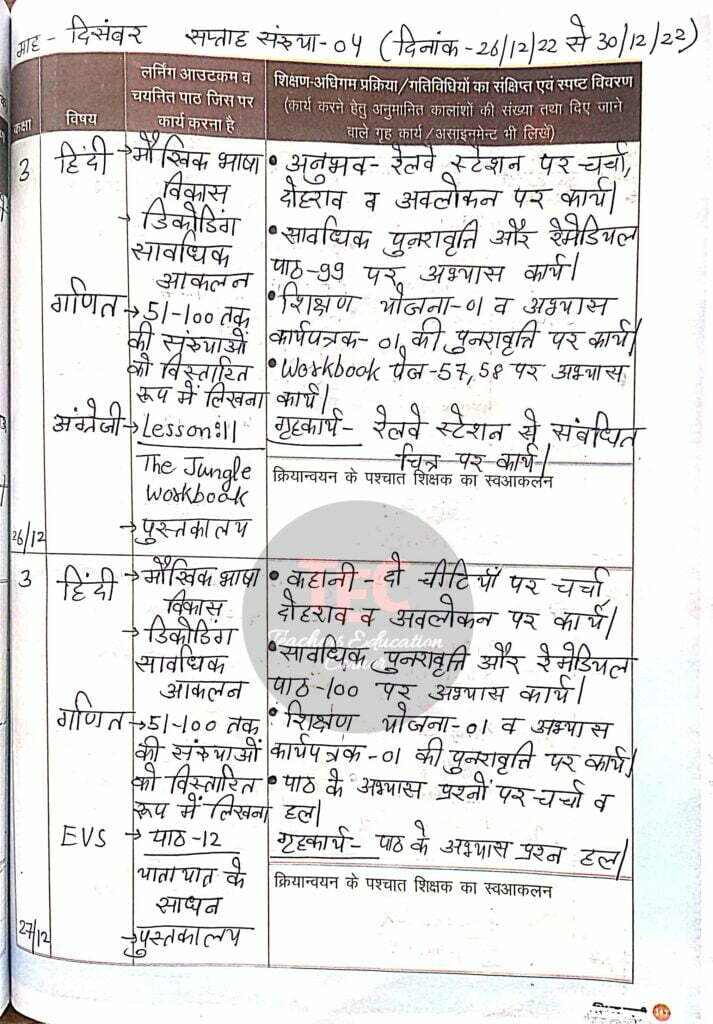 माह - दिसंबर सप्ताह संख्या-04 (दिनांक-26/12/22 से 30/12/22)
कक्षा
विषय
लर्निंग आउटकम व
चयनित पाठ जिस पर
कार्य करना है
शिक्षण-अधिगम प्रक्रिया/गतिविधियों का संक्षिप्त एवं स्पष्ट विवरण
(कार्य करने हेतु अनुमानित कालांशों की संख्या तथा दिए जाने
वाले गृह कार्य/असाइनमेन्ट भी लिखें)
3
हिंदी
→मौखिक भाषा
विकास
→डिकोडिंग
सावधिक
आकलन
गणित
→51-100 तक
की संख्याओं
को विस्तारित
रूप में लिखना
अंग्रेजी
→Lesson:11
The Jungle
Workbook
→पुस्तकालय
26/12
• अनुभव- रेलवे स्टेशन पर चर्चा,
दोहराव व अवलोकन पर कार्य।
• सावधिक पुनरावृत्ति और रेमेडियल
पाठ-99 पर अभ्यास कार्य।
• शिक्षण योजना-01 व अभ्यास
कार्यपत्रक-01 की पुनरावृत्ति पर कार्य।
• Workbook पेज-57,58 पर अभ्यास
कार्य।
गृहकार्य- रेलवे स्टेशन से संबंधित
चित्र पर कार्य।
क्रियान्वयन के पश्चात शिक्षक का स्वआकलन
3
हिंदी
→मौखिक भाषा
विकास
→डिकोडिंग
सावधिक
आकलन
गणित
→51-100 तक
की संख्याओं
को विस्तारित
रूप में लिखना
EVS
→ पाठ-12
यातायात के
साधन
→पुस्तकालय
27/12
• कहानी-दो चीटियाँ पर चर्चा
दोहराव व अवलोकन पर कार्य।
• सावधिक पुनरावृत्ति और रेमेडियल
पाठ-100 पर अभ्यास कार्य।
• शिक्षण योजना-01 व अभ्यास
कार्यपत्रक-01 की पुनरावृत्ति पर कार्य।
• पाठ के अभ्यास प्रश्नों पर चर्चा व
हल।
गृहकार्य- पाठ के अभ्यास प्रश्न हल।
क्रियान्वयन के पश्चात शिक्षक का स्वआकलन
TEC
Teachers Education
Corner